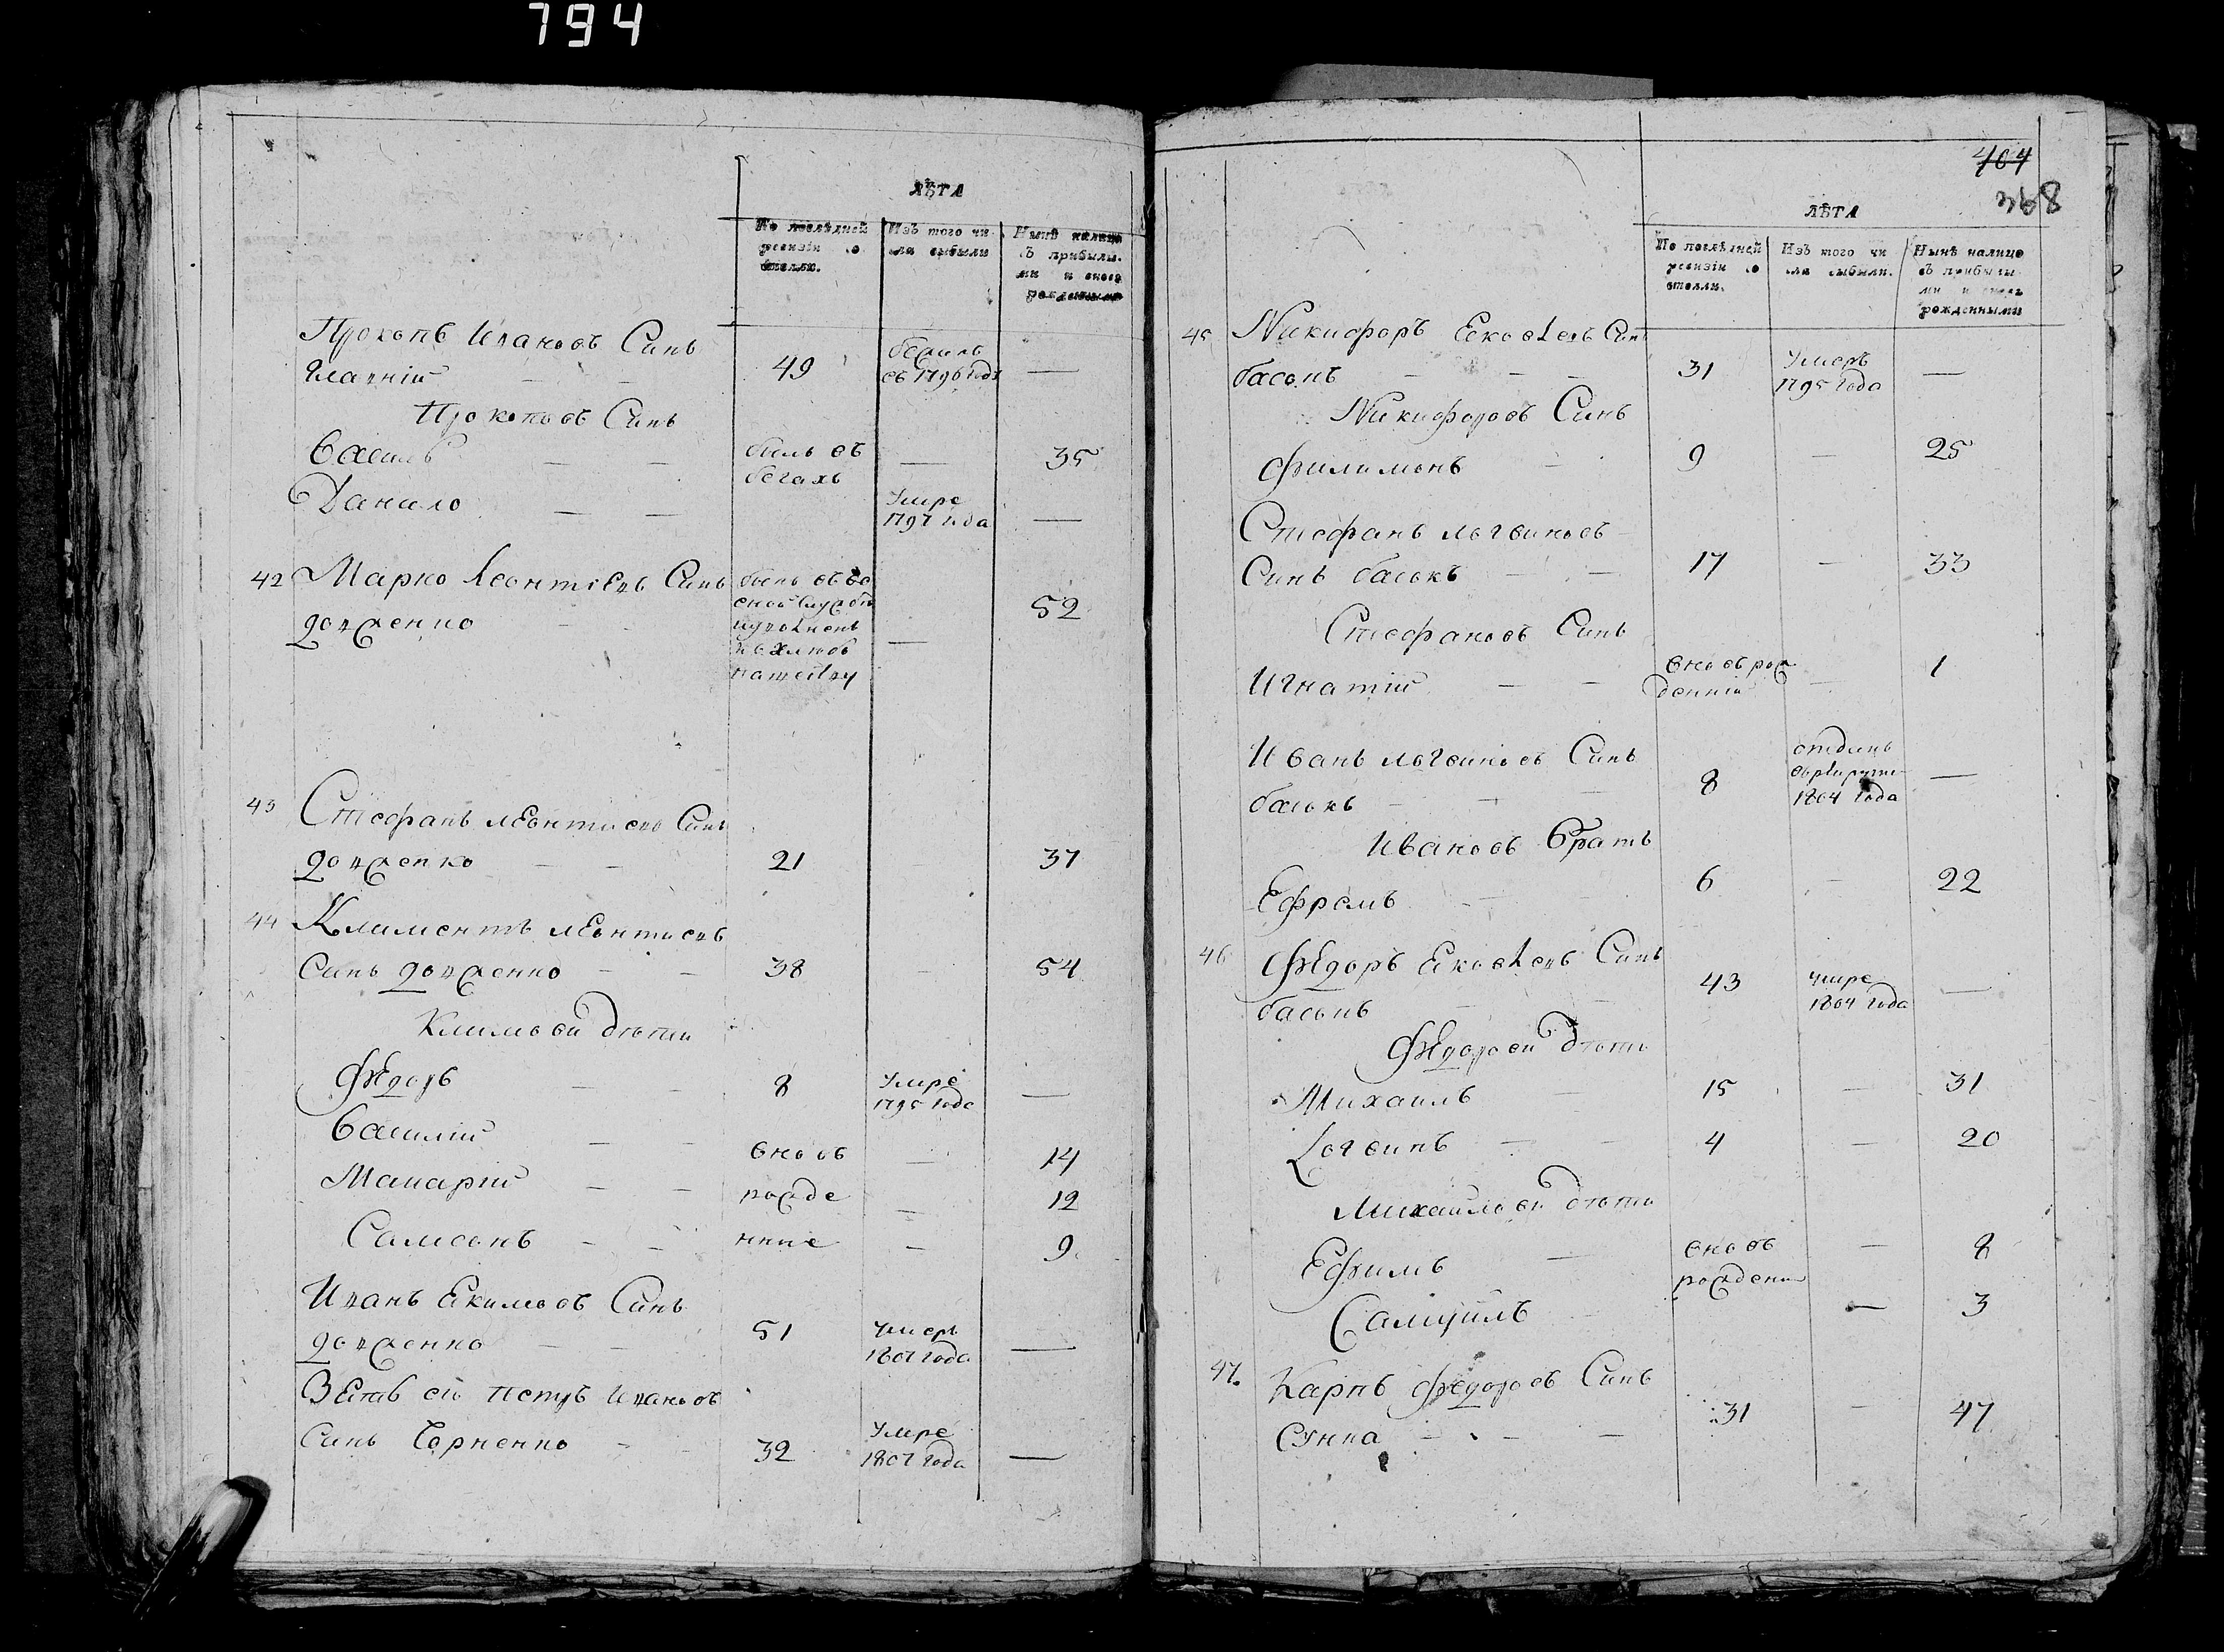 794
ЛѢТА
По послѣдней ревизіи состояло.
Изъ того числа выбыли
Нынѣ налицо съ прибылыми и вновь рожденными
Прокопъ Ивановъ Синъ
49
бежилъ
въ 1796 годѣ —
Прокоповъ Синъ
Василь — — билъ въ бегахъ — 35
Данило — — Умре 1797 года —
42 Марко Леонтіевъ Синъ
долженко — 52
43 Стефанъ леонтиевъ Синъ
долженко — — 21 37
44 Климентъ леонтиевъ
Синъ долженко — — 38 — 54
Климови дѣти
Федоръ — — 8 Умре 1795 года —
Василій — — вновь — 14
Макарій — — рожде — 12
Самсонъ — — нние — 9
Иванъ Екимовъ Синъ
долженко — — 51 умеръ 1807 года —
Зять его Петръ Ивановъ
Синъ Чорненко — — 32 Умре 1807 года —
404
368
ЛѢТА
По послѣдней ревизіи состояли.
Изъ того числа выбыли.
Нынѣ налицо съ прибылыми и вновь рожденными
45 Никифоръ Яковлевъ Синъ
басокъ — — — 31 Умеръ 1795 года —
Никифоровъ Синъ
Филимонъ — 9 — 25
Стефанъ логвиновъ
Синъ басокъ — — 17 — 33
Стефановъ Синъ
Игнатій — — вновърожденній — 1
Иванъ логвиновъ Синъ
басокъ — — — 8 отданъ в рекруты 1804 года —
Ивановъ Братъ
Ефремъ — — 6 — 22
46 Федоръ Яковлевъ Синъ
басокъ — — 43 умре 1804 года —
Федорови дѣти
Михаилъ — 15 — 31
Логвинъ — — 4 — 20
Михаилови дѣти
Ефимъ — вновъ — 8
рождени
Самуилъ — — 3
47. Карпъ Федоровъ Синъ
Сунка — — — 31 — 47